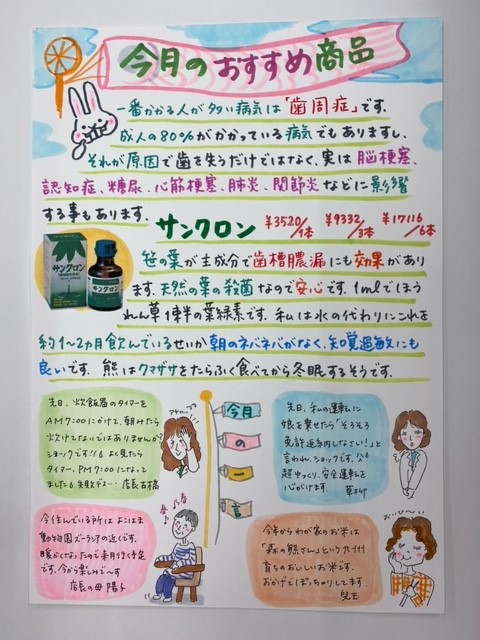 今月のおすすめ商品
一番かかる人が多い病気は「歯周症」です。
成人の80%がかかっている病気でもありますし、
それが原因で歯を失うだけではなく、実は脳梗塞、
認知症、糖尿、心筋梗塞、肺炎、関節炎などに影響
する事もあります。
サンクロン ¥3520/1本 ¥9332/3本 ¥17116/6本
サンクロン
サンクロン
笹の葉が主成分で歯槽膿漏にも効果があり
ます。天然の葉の殺菌なので安心です。1mlでほう
れん草1束半の葉緑素です。私は水の代わりにこれを
約1~2カ月飲んでいるせいか朝のネバネバがなく、知覚過敏にも
良いです。熊はクマザサをたらふく食べてから冬眠するそうです。
今月
の
一
言
先日、炊飯器のタイマーを
AM7:00にかけて、朝みたら
炊けてないではありませんか?
ショックです!!よく見たら
タイマー、PM7:00になって
ました。失敗デス… 店長 古橋
先日、私の運転に
娘を乗せたら「そろそろ
免許返納しなさい!」と
言われ、ショックです。
超ゆっくり、安全運転を
心がけます。
今住んでいる所は よこはま
動物園ズーラシアの近くです。
暖かくなったので来月行く予定
です。今から楽しみで〜す
店長の母 陽子
おいひ〜い
今年から わが家のお米は
「森の熊さん」という九州
育ちのおいしいお米です。
おかげでぽっちゃりしてます。
児玉